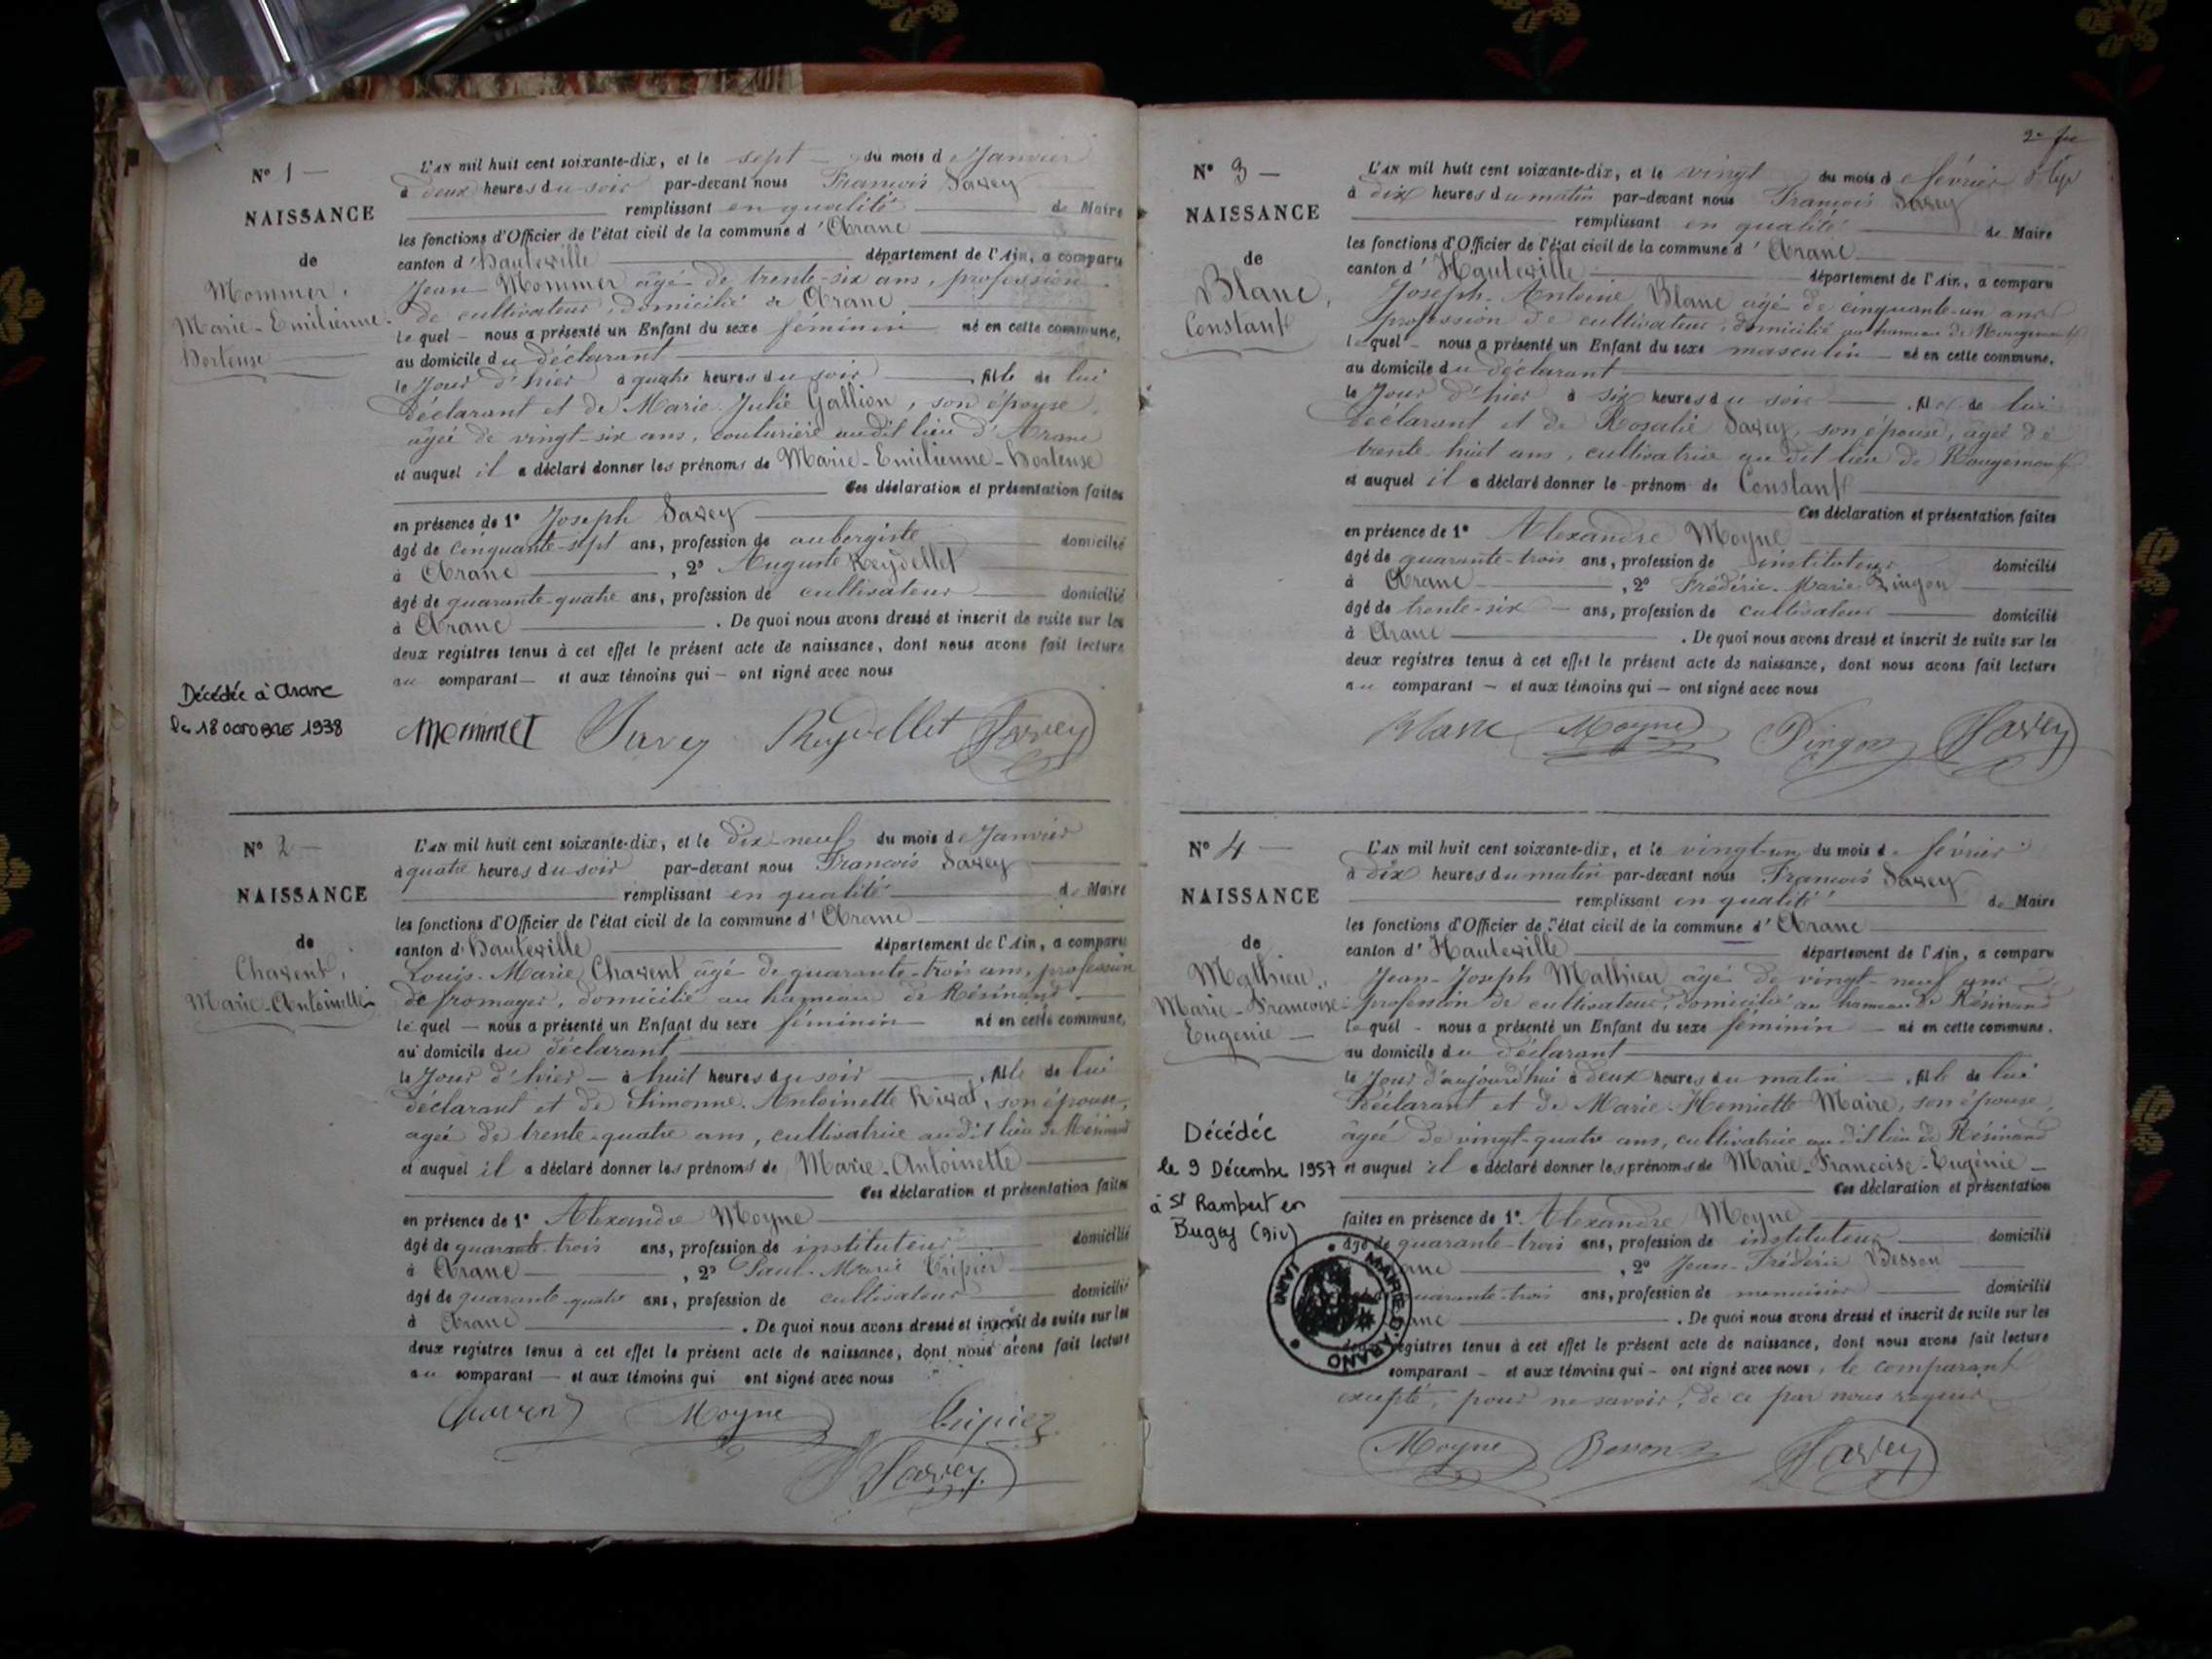 N° 1 —
NAISSANCE
de
Mommer,
Marie-Emilienne-
Hortense
L'AN mil huit cent soixante-dix, et le sept du mois de Janvier
à deux heures du soir par-devant nous François Savey
remplissant en qualité de Maire
les fonctions d'Officier de l'état civil de la commune d'Aranc
canton d'Hauteville département de l'Ain, a comparu
Jean Mommer âgé de trente-six ans, profession
de cultivateur, domicilié à Aranc
lequel — nous a présenté un Enfant du sexe féminin né en cette commune,
au domicile du déclarant
le Jour d'hier à quatre heures du soir, fille de lui
déclarant et de Marie Julie Gallion, son épouse,
âgée de vingt-six ans, couturière audit lieu d'Aranc
et auquel il a déclaré donner les prénoms de Marie-Emilienne-Hortense
Ces déclaration et présentation faites
en présence de 1° Joseph Savey
âgé de cinquante-sept ans, profession de aubergiste domicilié
à Aranc, 2° Auguste Reydellet
âgé de quarante-quatre ans, profession de cultivateur domicilié
à Aranc. De quoi nous avons dressé et inscrit de suite sur les
deux registres tenus à cet effet le présent acte de naissance, dont nous avons fait lecture
au comparant — et aux témoins qui — ont signé avec nous
Décédée à Aranc
le 18 octobre 1938
Mommet Savey Reydellet Savey
N° 2 —
NAISSANCE
de
Chavent,
Marie-Antoinette
L'AN mil huit cent soixante-dix, et le dix-neuf du mois de Janvier
à quatre heures du soir par-devant nous François Savey
remplissant en qualité de Maire
les fonctions d'Officier de l'état civil de la commune d'Aranc
canton d'Hauteville département de l'Ain, a comparu
Louis-Marie Chavent âgé de quarante-trois ans, profession
de fromager, domicilié au hameau de Résinand
lequel — nous a présenté un Enfant du sexe féminin né en cette commune,
au domicile du déclarant
le Jour d'hier — à huit heures du soir, fille de lui
déclarant et de Simonne-Antoinette Rivat, son épouse,
âgée de trente-quatre ans, cultivatrice audit lieu de Résinand
et auquel il a déclaré donner les prénoms de Marie-Antoinette
Ces déclaration et présentation faites
en présence de 1° Alexandre Moyne
âgé de quarante-trois ans, profession de instituteur domicilié
à Aranc, 2° Paul-Marie Tripier
âgé de quarante-quatre ans, profession de cultivateur domicilié
à Aranc. De quoi nous avons dressé et inscrit de suite sur les
deux registres tenus à cet effet le présent acte de naissance, dont nous avons fait lecture
au comparant — et aux témoins qui ont signé avec nous
Chavent Moyne Tripier
Savey
N° 3 —
NAISSANCE
de
Blanc,
Constant
L'AN mil huit cent soixante-dix, et le vingt du mois de février
à dix heures du matin par-devant nous François Savey
remplissant en qualité de Maire
les fonctions d'Officier de l'état civil de la commune d'Aranc
canton d'Hauteville département de l'Ain, a comparu
Joseph-Antoine Blanc âgé de cinquante-un ans
profession de cultivateur, domicilié au hameau de Rougemont
lequel — nous a présenté un Enfant du sexe masculin — né en cette commune,
au domicile du déclarant
le Jour d'hier à six heures du soir, fils de lui
déclarant et de Rosalie Savey, son épouse, âgée de
trente-huit ans, cultivatrice au dit lieu de Rougemont
et auquel il a déclaré donner le prénom de Constant
Ces déclaration et présentation faites
en présence de 1° Alexandre Moyne
âgé de quarante-trois ans, profession de instituteur domicilié
à Aranc, 2° Frédéric-Marie Pingon
âgé de trente-six — ans, profession de cultivateur domicilié
à Aranc. De quoi nous avons dressé et inscrit de suite sur les
deux registres tenus à cet effet le présent acte de naissance, dont nous avons fait lecture
au comparant — et aux témoins qui — ont signé avec nous
Blanc Moyne Pingon Savey
N° 4 —
NAISSANCE
de
Mathieu,
Marie-Françoise-
Eugénie —
L'AN mil huit cent soixante-dix, et le vingt-un du mois de février
à dix heures du matin par-devant nous François Savey
remplissant en qualité de Maire
les fonctions d'Officier de l'état civil de la commune d'Aranc
canton d'Hauteville département de l'Ain, a comparu
Jean-Joseph Mathieu âgé de vingt-neuf ans
profession de cultivateur, domicilié au hameau de Résinand
lequel — nous a présenté un Enfant du sexe féminin — né en cette commune,
au domicile du déclarant
le Jour d'aujourd'hui à deux heures du matin —, fille de lui
déclarant et de Marie-Henriette Maire, son épouse,
âgée de vingt-quatre ans, cultivatrice au dit lieu de Résinand
et auquel il a déclaré donner les prénoms de Marie-Françoise-Eugénie —
Ces déclaration et présentation
faites en présence de 1° Alexandre Moyne
âgé de quarante-trois ans, profession de instituteur domicilié
anc, 2° Jean-Frédéric Besson
quarante-trois ans, profession de menuisier domicilié
anc. De quoi nous avons dressé et inscrit de suite sur les
deux registres tenus à cet effet le présent acte de naissance, dont nous avons fait lecture
comparant — et aux témoins qui — ont signé avec nous, le comparant
excepté, pour ne savoir, de ce par nous requis
Décédée
le 9 Décembre 1957
à St Rambert en
Bugey (Ain)
MAIRIE D'ARANC (AIN)
Moyne Besson Savey